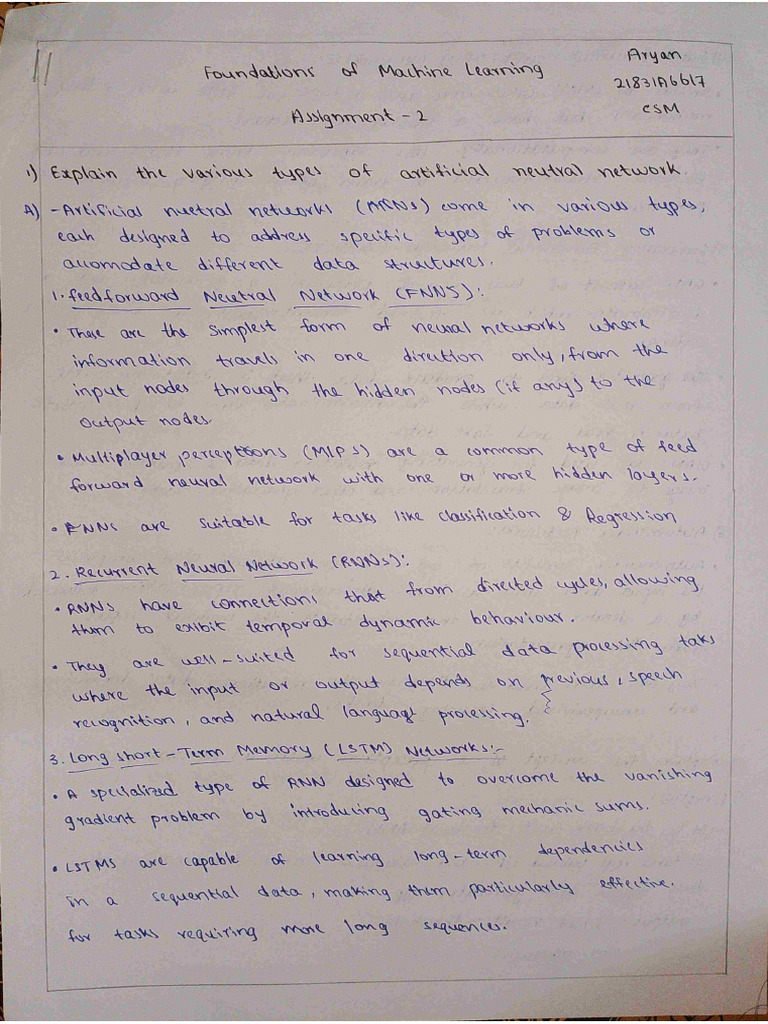 Foundations of Machine Learning
Assignment - 2
Aryan
21831A6617
CSM
1) Explain the various types of artificial neutral network.
A) - Artificial nuetral networks (ARNs) come in various types,
each designed to address specific types of problems or
accomodate different data structures.
1. feedforward Neutral Network (FNNS):
• These are the simplest form of neural networks where
information travels in one direction only, from the
input nodes through the hidden nodes (if any) to the
output nodes.
• Multiplayer perceptions (MlPs) are a common type of feed
forward neural network with one or more hidden layers.
• FNNs are suitable for tasks like classification & Regression
2. Recurrent Neural Network (RNNs):
• RNNs have connections that from directed cycles, allowing
them to exibit temporal dynamic behaviour.
• They are well-suited for sequential data processing taks
where the input or output depends on previous, speech
recognition, and natural language processing.
3. Long short-Term Memory (LSTM) Networks:-
• A specialized type of RNN designed to overcome the vanishing
gradient problem by introducing gating mechanic sums.
• LSTMS are capable of learning long-term dependencies
in a sequential data, making them particularly effective.
for tasks requiring more long sequences.